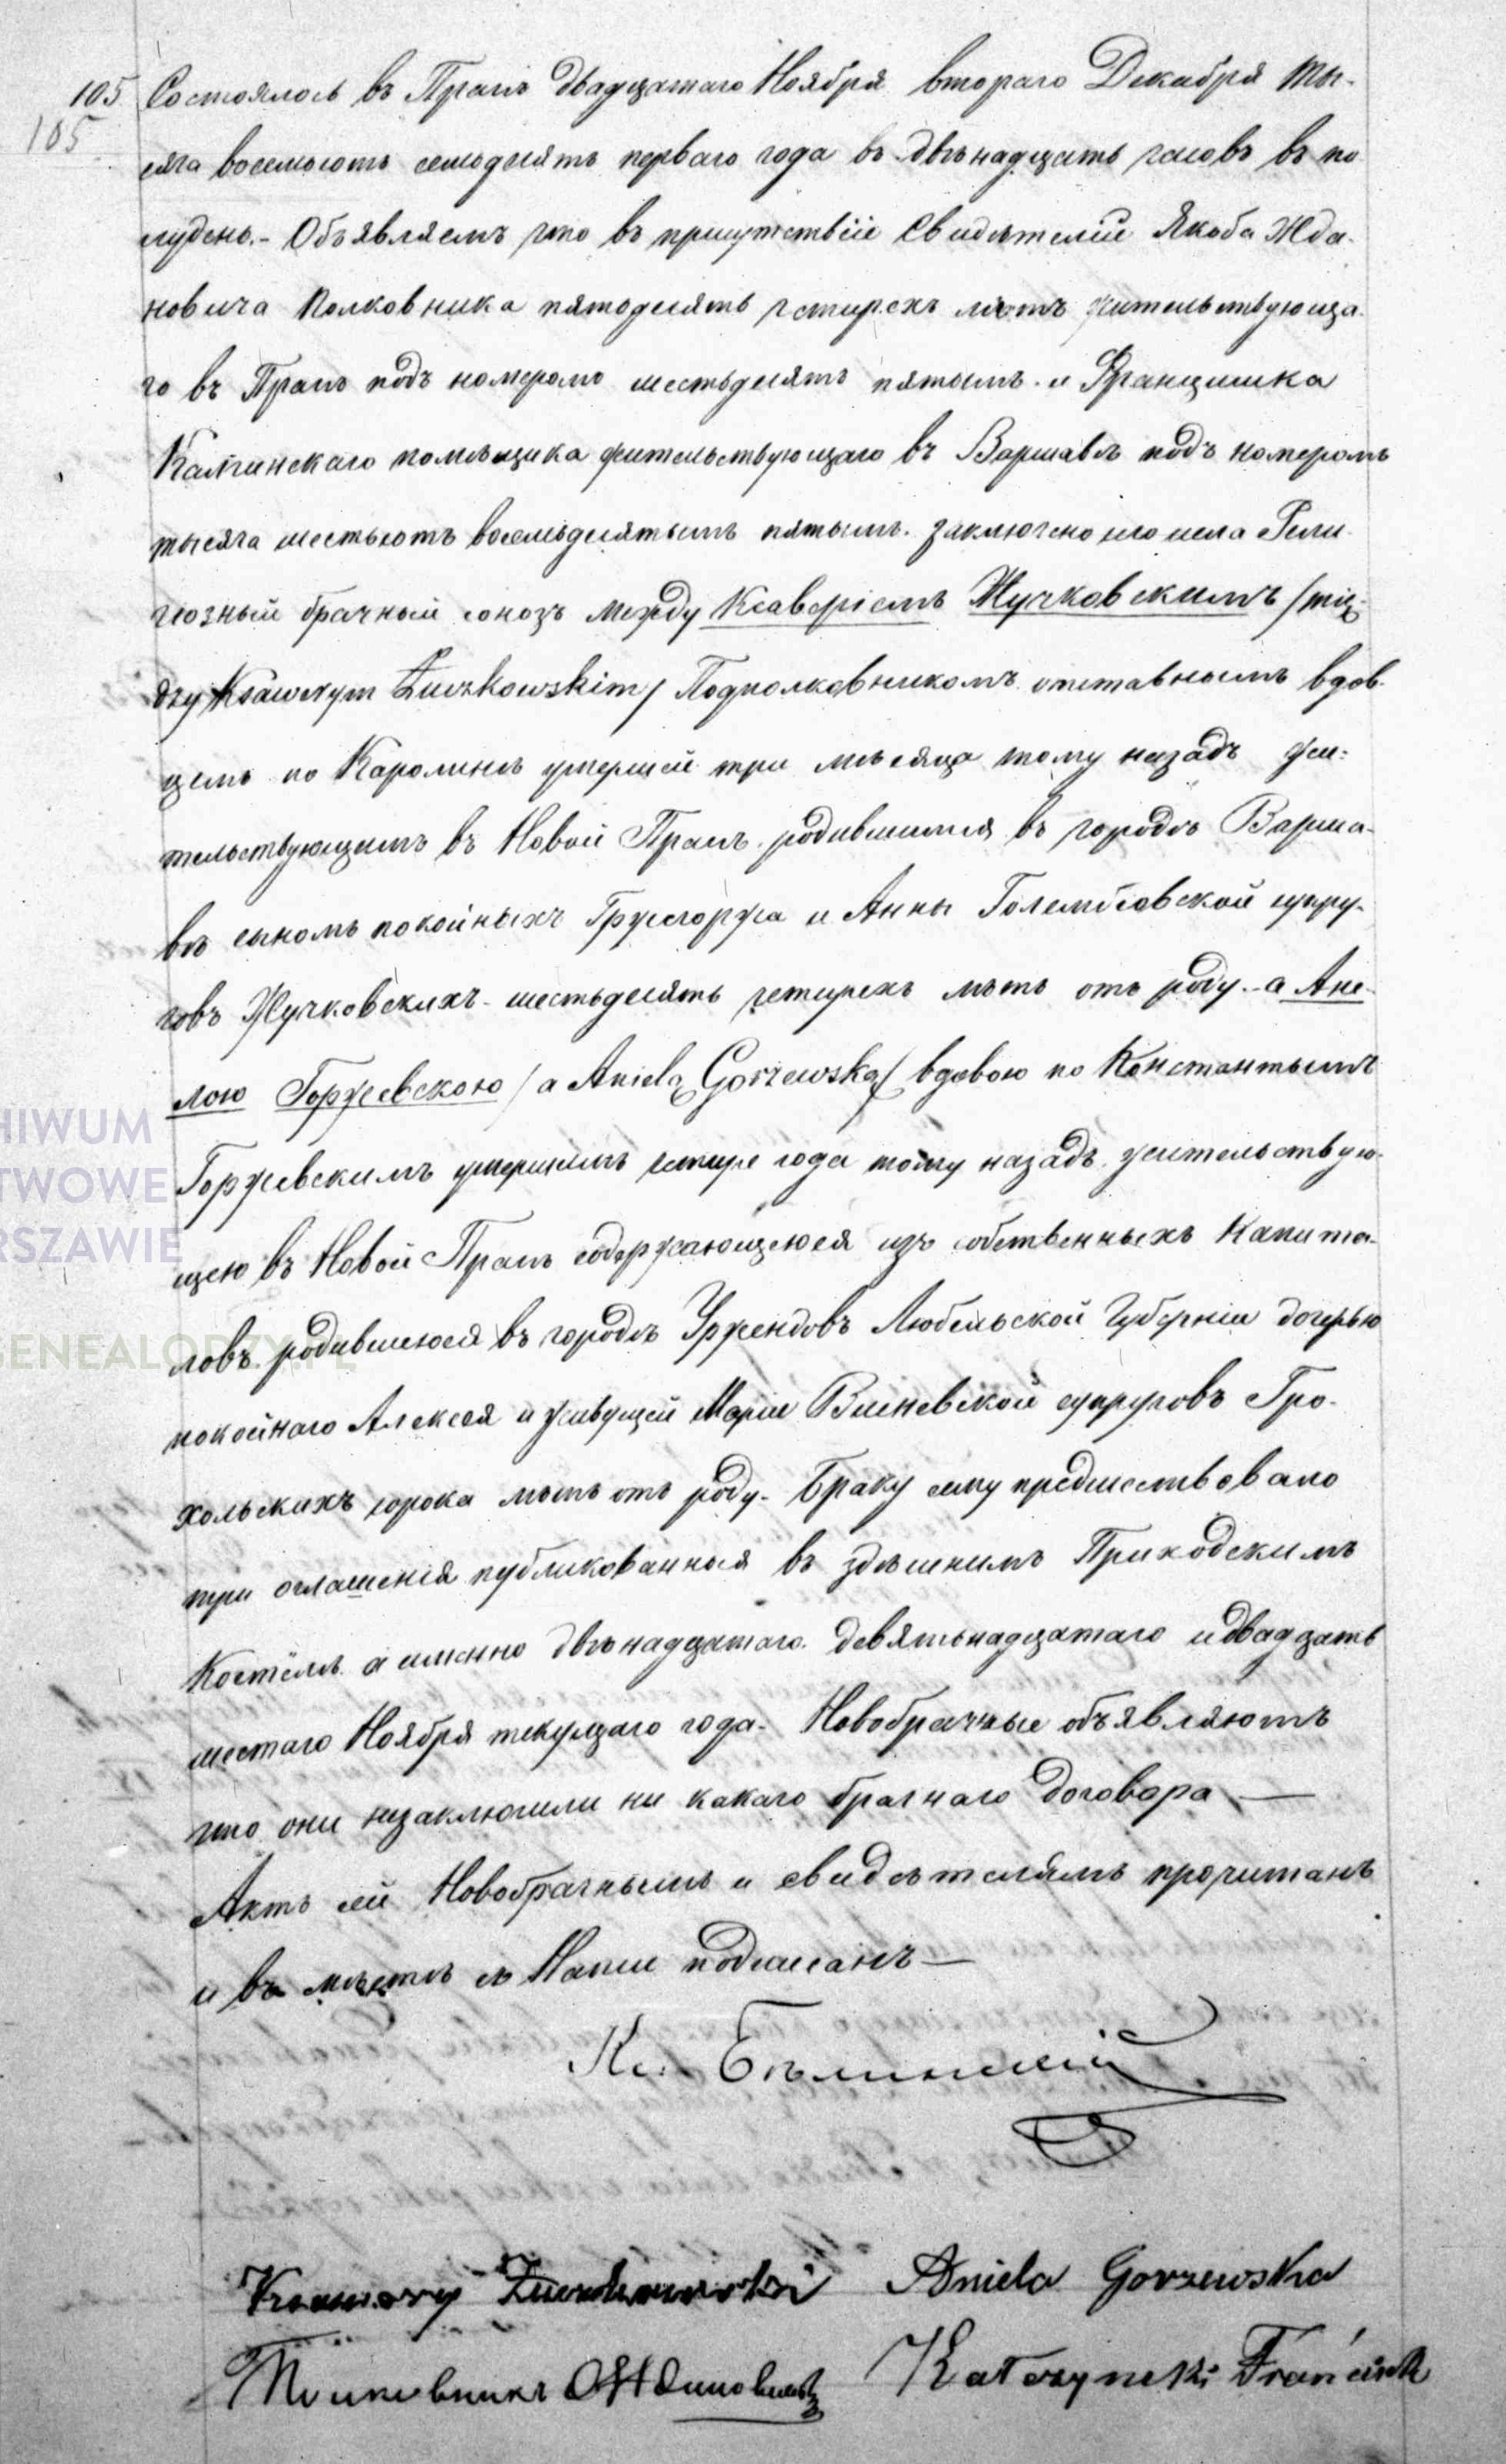 105 Состоялось въ Прагѣ двадцатаго Ноября втораго Декабря ты-
105
сяча восемьсотъ семьдесятъ перваго года въ двѣнадцать часовъ въ по
лудень.- Объявляемъ что въ присутствіи Свидѣтелей Якоба Жда-
новича Полковника пятьдесятъ четырехъ лѣтъ жительствующа-
го въ Прагѣ подъ номеромъ шестьдесятъ пятымъ. и Францишка
помѣщика жительствующаго въ Варшавѣ подъ номеромъ
тысяча шестьсотъ восемьдесятымъ пятымъ. заключено сего числа Рели-
гіозный брачный союзъ между Ксаверіемъ Жучковскимъ /mię-
dzy Ksawerym Żuczkowskim/ Подполковникомъ отставнымъ вдов-
цемъ по Каролинѣ умершей три мѣсяца тому назадъ жи-
тельствующимъ въ Новой Прагѣ, родившимся въ городѣ Варша-
вѣ сыномъ покойныхъ Гржегоржа и Анны Голембіовской супру-
говъ Жучковскихъ- шестьдесятъ четырехъ лѣтъ отъ роду.- а Ане-
лою Горжевскою /a Anielą Gorzewską/ вдовою по Константымъ
Горжевскимъ умершимъ четыре года тому назадъ. жительствую-
щею въ Новой Прагѣ содержающеюся изъ собственныхъ Капита-
ловъ родившеюся въ городѣ Уржендовъ Любельской Губерніи дочерью
покойнаго Алексея и живущей Маріи Висневской супруговъ Гро-
хольскихъ сорока лѣтъ отъ роду.- Браку сему предшествовало
три оглашенія публикованныя въ здѣшнимъ Приходскимъ
Костёлѣ а именно двѣнадцатаго. девятьнадцатаго и двадцать
шестаго Ноября текущаго года.- Новобрачные объявляютъ
что они незаключили ни какаго брачнаго договора —
Актъ сей Новобрачнымъ и свидѣтелямъ прочитанъ
и въ мѣстѣ съ Нами подписанъ —
Кс. Бѣлинскій
Ksawery Żuczkowski Aniela Gorzewska
Полковникъ Ждановичъ
ARCHIWUM
PAŃSTWOWE
W WARSZAWIE
GENEALODZY.PL